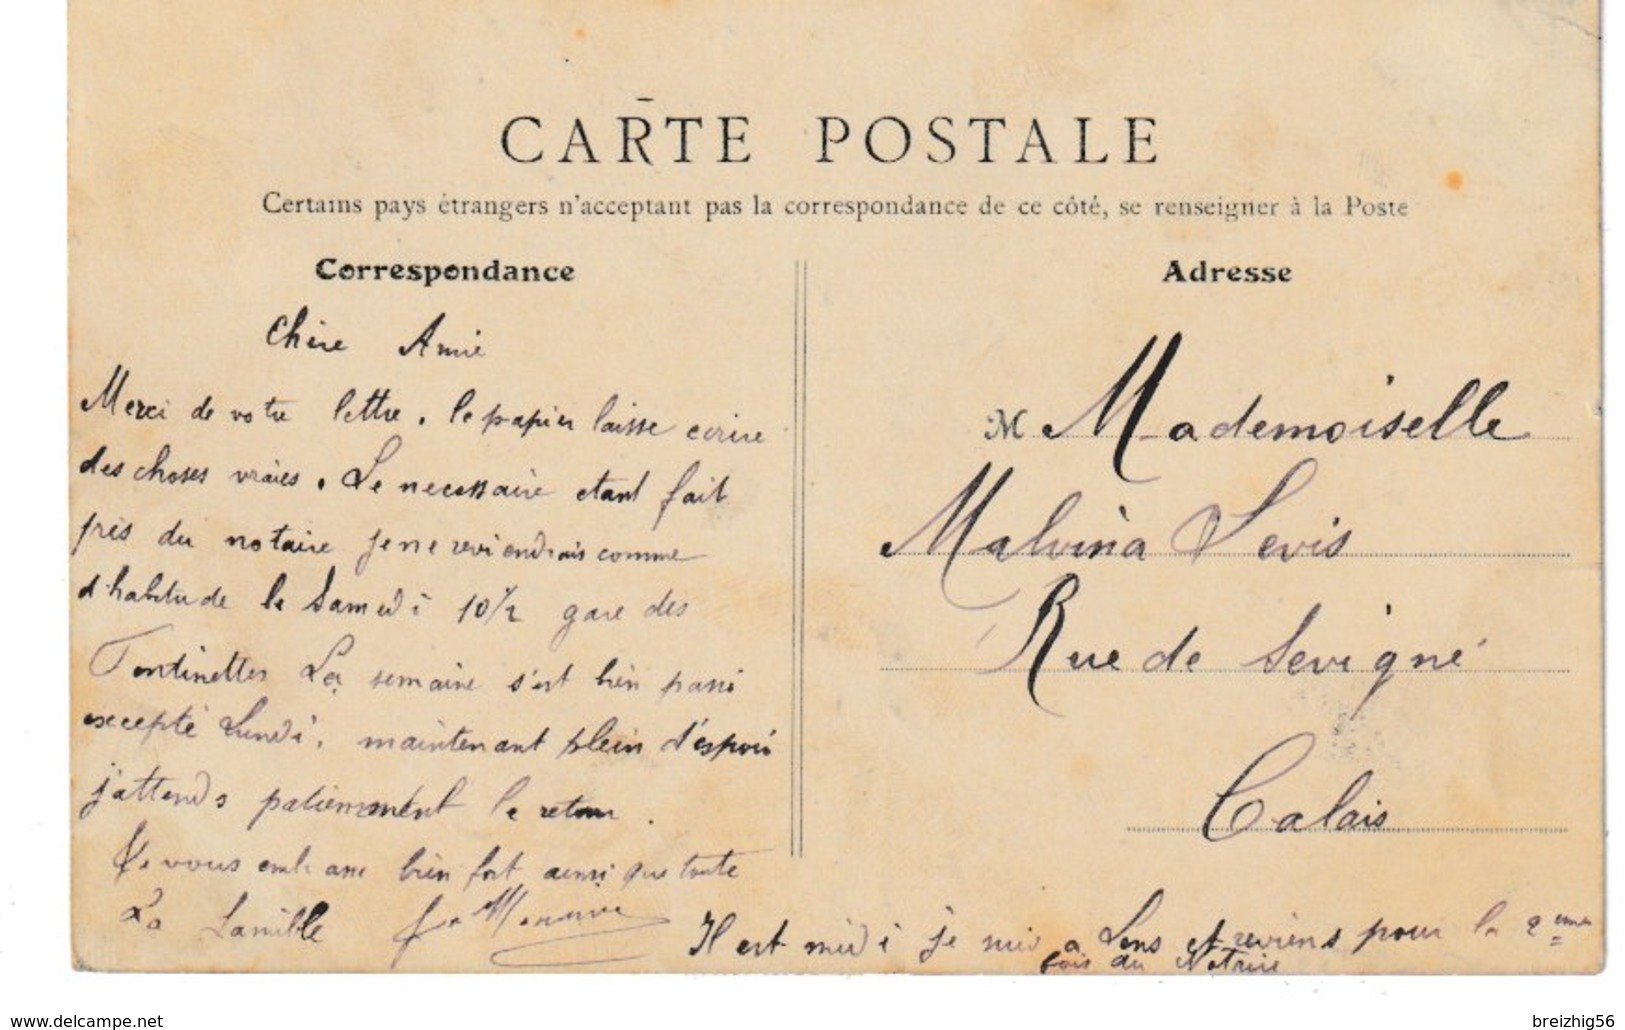 CARTE POSTALE
Certains pays étrangers n'acceptant pas la correspondance de ce côté, se renseigner à la Poste
Correspondance
Chère Amie
Merci de votre lettre. le papier laisse ecrire
des choses vraies. Le necessaire etant fait
près du notaire je ne reviendrais comme
d'habitude le Samedi 10 1/2 gare des
Fontinettes La semaine s'est bien passé
excepté Lundi, maintenant plein d'espoir
j'attends patiemment le retour.
Je vous embrasse bien fort ainsi que toute
La famille
Il est midi je suis a Lens et reviens pour la 2eme
fois du Notaire
Adresse
M Mademoiselle
Malvina Sevis
Rue de Sevigné
Calais
www.delcampe.net
breizhig56